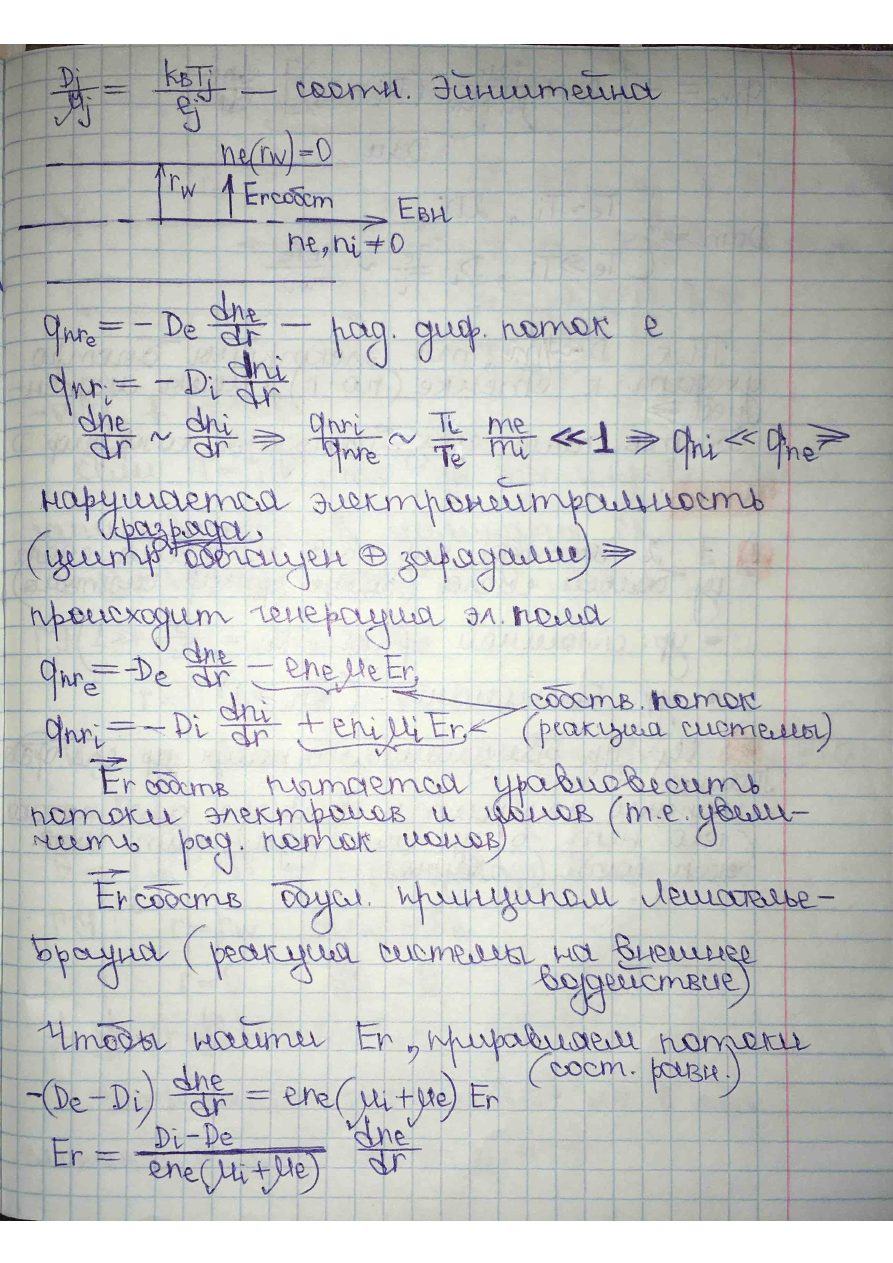 Dj/μj = kвTj/ej — соотн. Эйнштейна
ne(rw)=0
rw Er собст Eвн
ne, ni ≠ 0
qnre = − De dne/dr — рад. диф. поток e
qnri = − Di dni/dr
dne/dr ~ dni/dr ⇒ qnri/qnre ~ Ti/Te me/mi ≪ 1 ⇒ qni ≪ qne ⇒
нарушается электронейтральность
(центр разряда обогащен ⊕ зарядами) ⇒
происходит генерация эл. поля
qnre = −De dne/dr − eneμeEr
собств. поток
qnri = − Di dni/dr + eniμiEr
(реакция системы)
Er собств пытается уравновесить
потоки электронов и ионов (т.е. увели-
чить рад. поток ионов)
Er собств обусл. принципом Лешателье-
Брауна (реакция системы на внешнее
воздействие)
Чтобы найти Er, приравняем потоки
(сост. равн.)
−(De−Di) dne/dr = ene(μi+μe) Er
Er = Di−De/ene(μi+μe) dne/dr